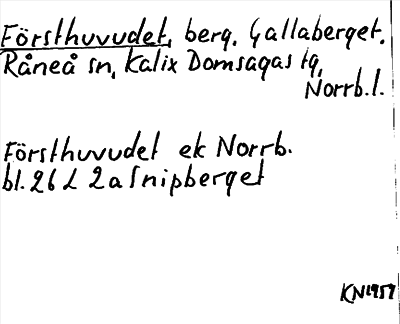 Försthuvudet, berg, Gallaberget,
Råneå sn, Kalix Domsagas tg,
Norrb.l.
Försthuvudet ek Norrb.
bl. 26 L 2a Snipberget
KN1957